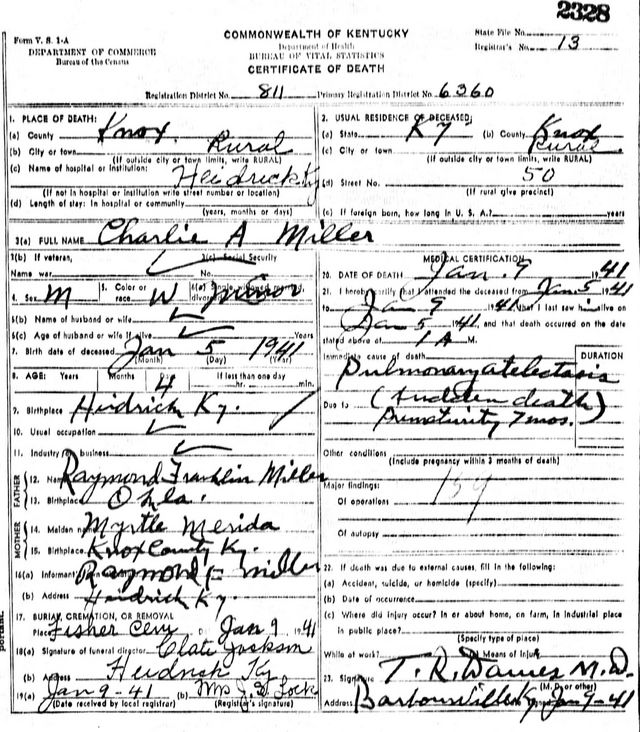 2328
Form V. S. 1-A
DEPARTMENT OF COMMERCE
Bureau of the Census
COMMONWEALTH OF KENTUCKY
Department of Health
BUREAU OF VITAL STATISTICS
CERTIFICATE OF DEATH
State File No.
Registrar's No. 13
Registration District No. 811 Primary Registration District No. 6360
1. PLACE OF DEATH:
(a) County Knox
(b) City or town Rural
(If outside city or town limits, write RURAL)
(c) Name of hospital or institution: Heidrick Ky
(If not in hospital or institution write street number or location)
(d) Length of stay: In hospital or community
(years, months or days)
2. USUAL RESIDENCE OF DECEASED:
(a) State Ky (b) County Knox
(c) City or town Rural
(If outside city or town limits, write RURAL)
(d) Street No. 50
(If rural give precinct)
(e) If foreign born, how long in U. S. A.? years
3(a) FULL NAME Charlie A Miller
3(b) If veteran, 3(c) Social Security
Name war No.
4. Sex M 5. Color or race W 6(a) minor
6(b) Name of husband or wife
6(c) Age of husband or wife if alive Years
7. Birth date of deceased Jan 5 1941
(Month) (Day) (Year)
8. AGE: Years Months Days If less than one day
4 hr. min.
9. Birthplace Heidrick Ky.
10. Usual occupation
11. Industry or business
FATHER
12. Name Raymond Franklin Miller
13. Birthplace Okla.
MOTHER
14. Maiden name Myrtle Merida
15. Birthplace Knox County Ky.
16(a) Informant Raymond F Miller
(b) Address Heidrick Ky.
17. BURIAL, CREMATION, OR REMOVAL
Place Fisher Cem Jan 9 1941
18(a) Signature of funeral director Clate Jackson
(b) Address Heidrick Ky
19(a) Jan 9-41 (b) Mrs J. B. Lock
(Date received by local registrar) (Registrar's signature)
MEDICAL CERTIFICATION
20. DATE OF DEATH Jan. 9 1941
21. I hereby certify that I attended the deceased from Jan 5 1941
to Jan 9 1941, that I last saw h alive on
Jan 5 1941, and that death occurred on the date
stated above at 1 A M.
Immediate cause of death DURATION
Pulmonary atelectasis
(sudden death)
Due to Prematurity 7 mos.
Other conditions
(Include pregnancy within 3 months of death)
Major findings: 159
Of operations
Of autopsy
22. If death was due to external causes, fill in the following:
(a) Accident, suicide, or homicide (specify)
(b) Date of occurrence
(c) Where did injury occur? In or about home, on farm, in industrial place
in public place?
(Specify type of place)
While at work? Means of injury
23. Signature T. R. Davies M.D.
(M. D. or other)
Address Barbourville Ky Jan 9-41